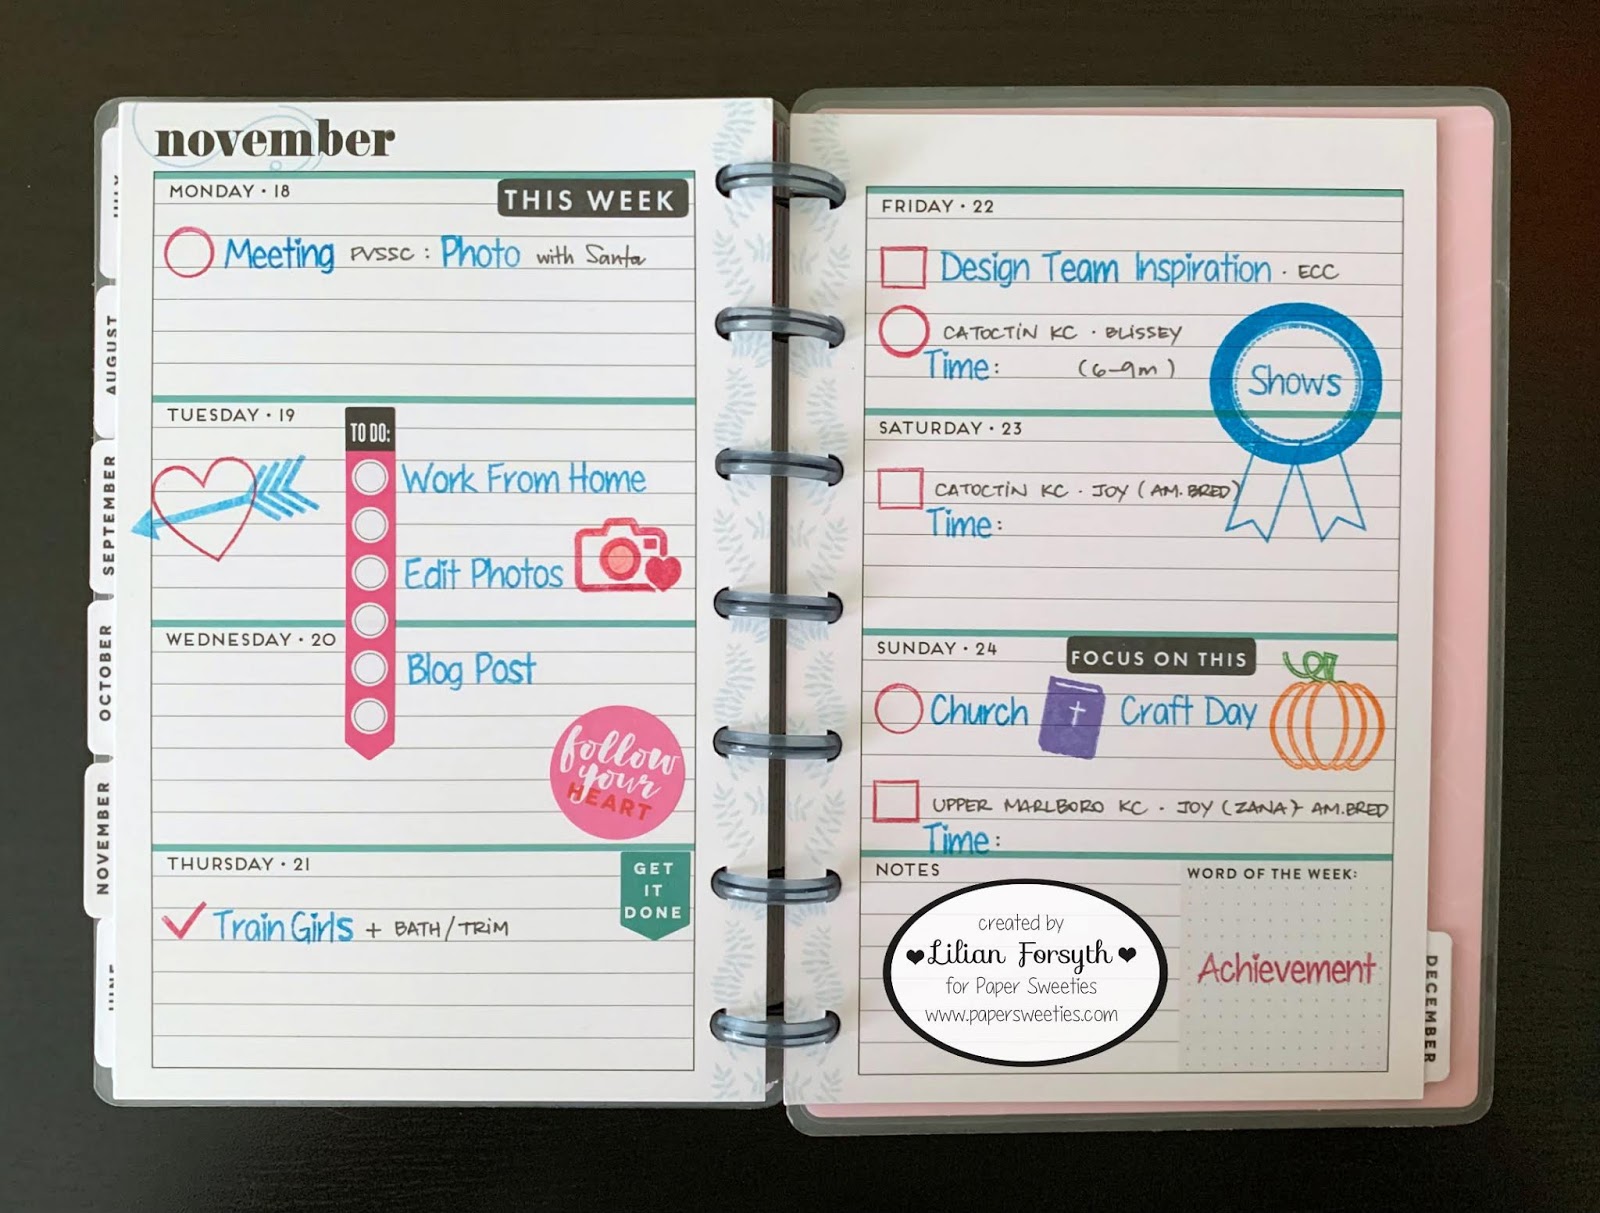 november
MONDAY • 18
THIS WEEK
Meeting PVSSC : Photo with Santa
TUESDAY • 19
TO DO:
Work From Home
Edit Photos
WEDNESDAY • 20
Blog Post
follow
your
HEART
THURSDAY • 21
GET
IT
DONE
Train Girls + BATH/TRIM
AUGUST
SEPTEMBER
OCTOBER
NOVEMBER
FRIDAY • 22
Design Team Inspiration • ECC
CATOCTIN KC • BLISSEY
Time: (6-9m)
Shows
SATURDAY • 23
CATOCTIN KC • JOY (AM.BRED)
Time:
SUNDAY • 24
FOCUS ON THIS
Church Craft Day
UPPER MARLBORO KC • JOY (ZANA) AM.BRED
Time:
NOTES
created by
Lilian Forsyth
for Paper Sweeties
www.papersweeties.com
WORD OF THE WEEK:
Achievement
DECEMBER